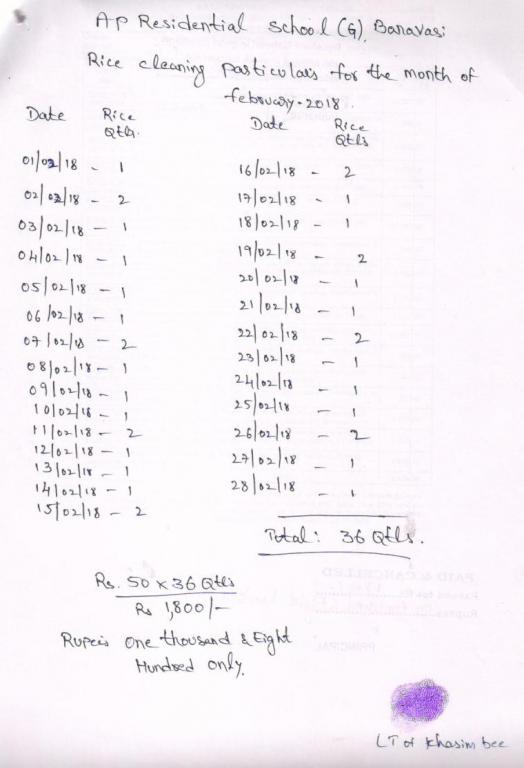 Ap Residential School (G), Banavasi
Rice cleaning particulars for the month of
february-2018.
Date Rice Qtls.
01/02/18 - 1
02/02/18 - 2
03/02/18 - 1
04/02/18 - 1
05/02/18 - 1
06/02/18 - 1
07/02/18 - 2
08/02/18 - 1
09/02/18 - 1
10/02/18 - 1
11/02/18 - 2
12/02/18 - 1
13/02/18 - 1
14/02/18 - 1
15/02/18 - 2
Date Rice Qtls
16/02/18 - 2
17/02/18 - 1
18/02/18 - 1
19/02/18 - 2
20/02/18 - 1
21/02/18 - 1
22/02/18 - 2
23/02/18 - 1
24/02/18 - 1
25/02/18 - 1
26/02/18 - 2
27/02/18 - 1
28/02/18 - 1
Total: 36 Qtls.
Rs. 50 x 36 Qtls
Rs 1,800/-
Rupeis One thousand & Eight
Hundred only.
PAID & CANCELLED
PRINCIPAL
LT of Khasim bee